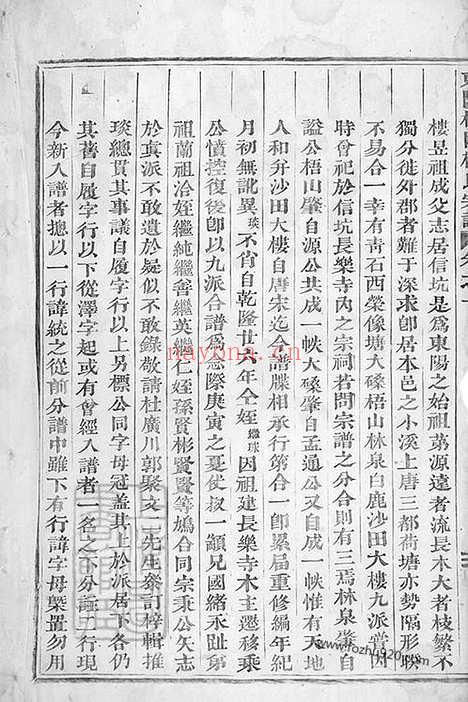 樓昱祖成父志居信坑是爲東陽之始祖第源遠者流長本大者枝繁不
獨分徙外郡者難于深求卽居本邑之小溪上唐三都荷塘亦勢隔形睽
不易合一幸有靑石西營像塘大磉梧山林泉白鹿沙田大樓九派嘗因
時會祀於信坑長樂寺內之宗祠若問宗譜之分合則有三焉林泉發自
謚公梧山肇自源公共成一帙大磉肇自孟通公又自成一帙惟有天地
人和弁沙田大樓自唐宋迄今譜牒相承行第合一卽累屆重修編年紀
月初無訛異琰不肖自乾隆廿八年仝姪繼球因祖建長樂寺木主遷移乘
公憤控復後卽以九派合譜爲念際庚寅之夏優叔一顓兄國緒永趾第
祖蘭祖洽姪繼純繼善繼英繼仁姪孫賢彬賢賢等鳩合同宗秉公矢志
於眞派不敢遺於疑似不敢錄敬請杜廣川郭聚文二先生叅訂梓輯推
琰總貫其事議自履字行以上另標公同字母冠蓋其上於派居下各仍
其舊自履字行以下從澤字起或有曾經入譜者一名之下分註二行現
今新入譜者摠以一行諱統之從前分譜中雖下有行諱字母槩置勿用
nayona.cn
www.fozhu920.com